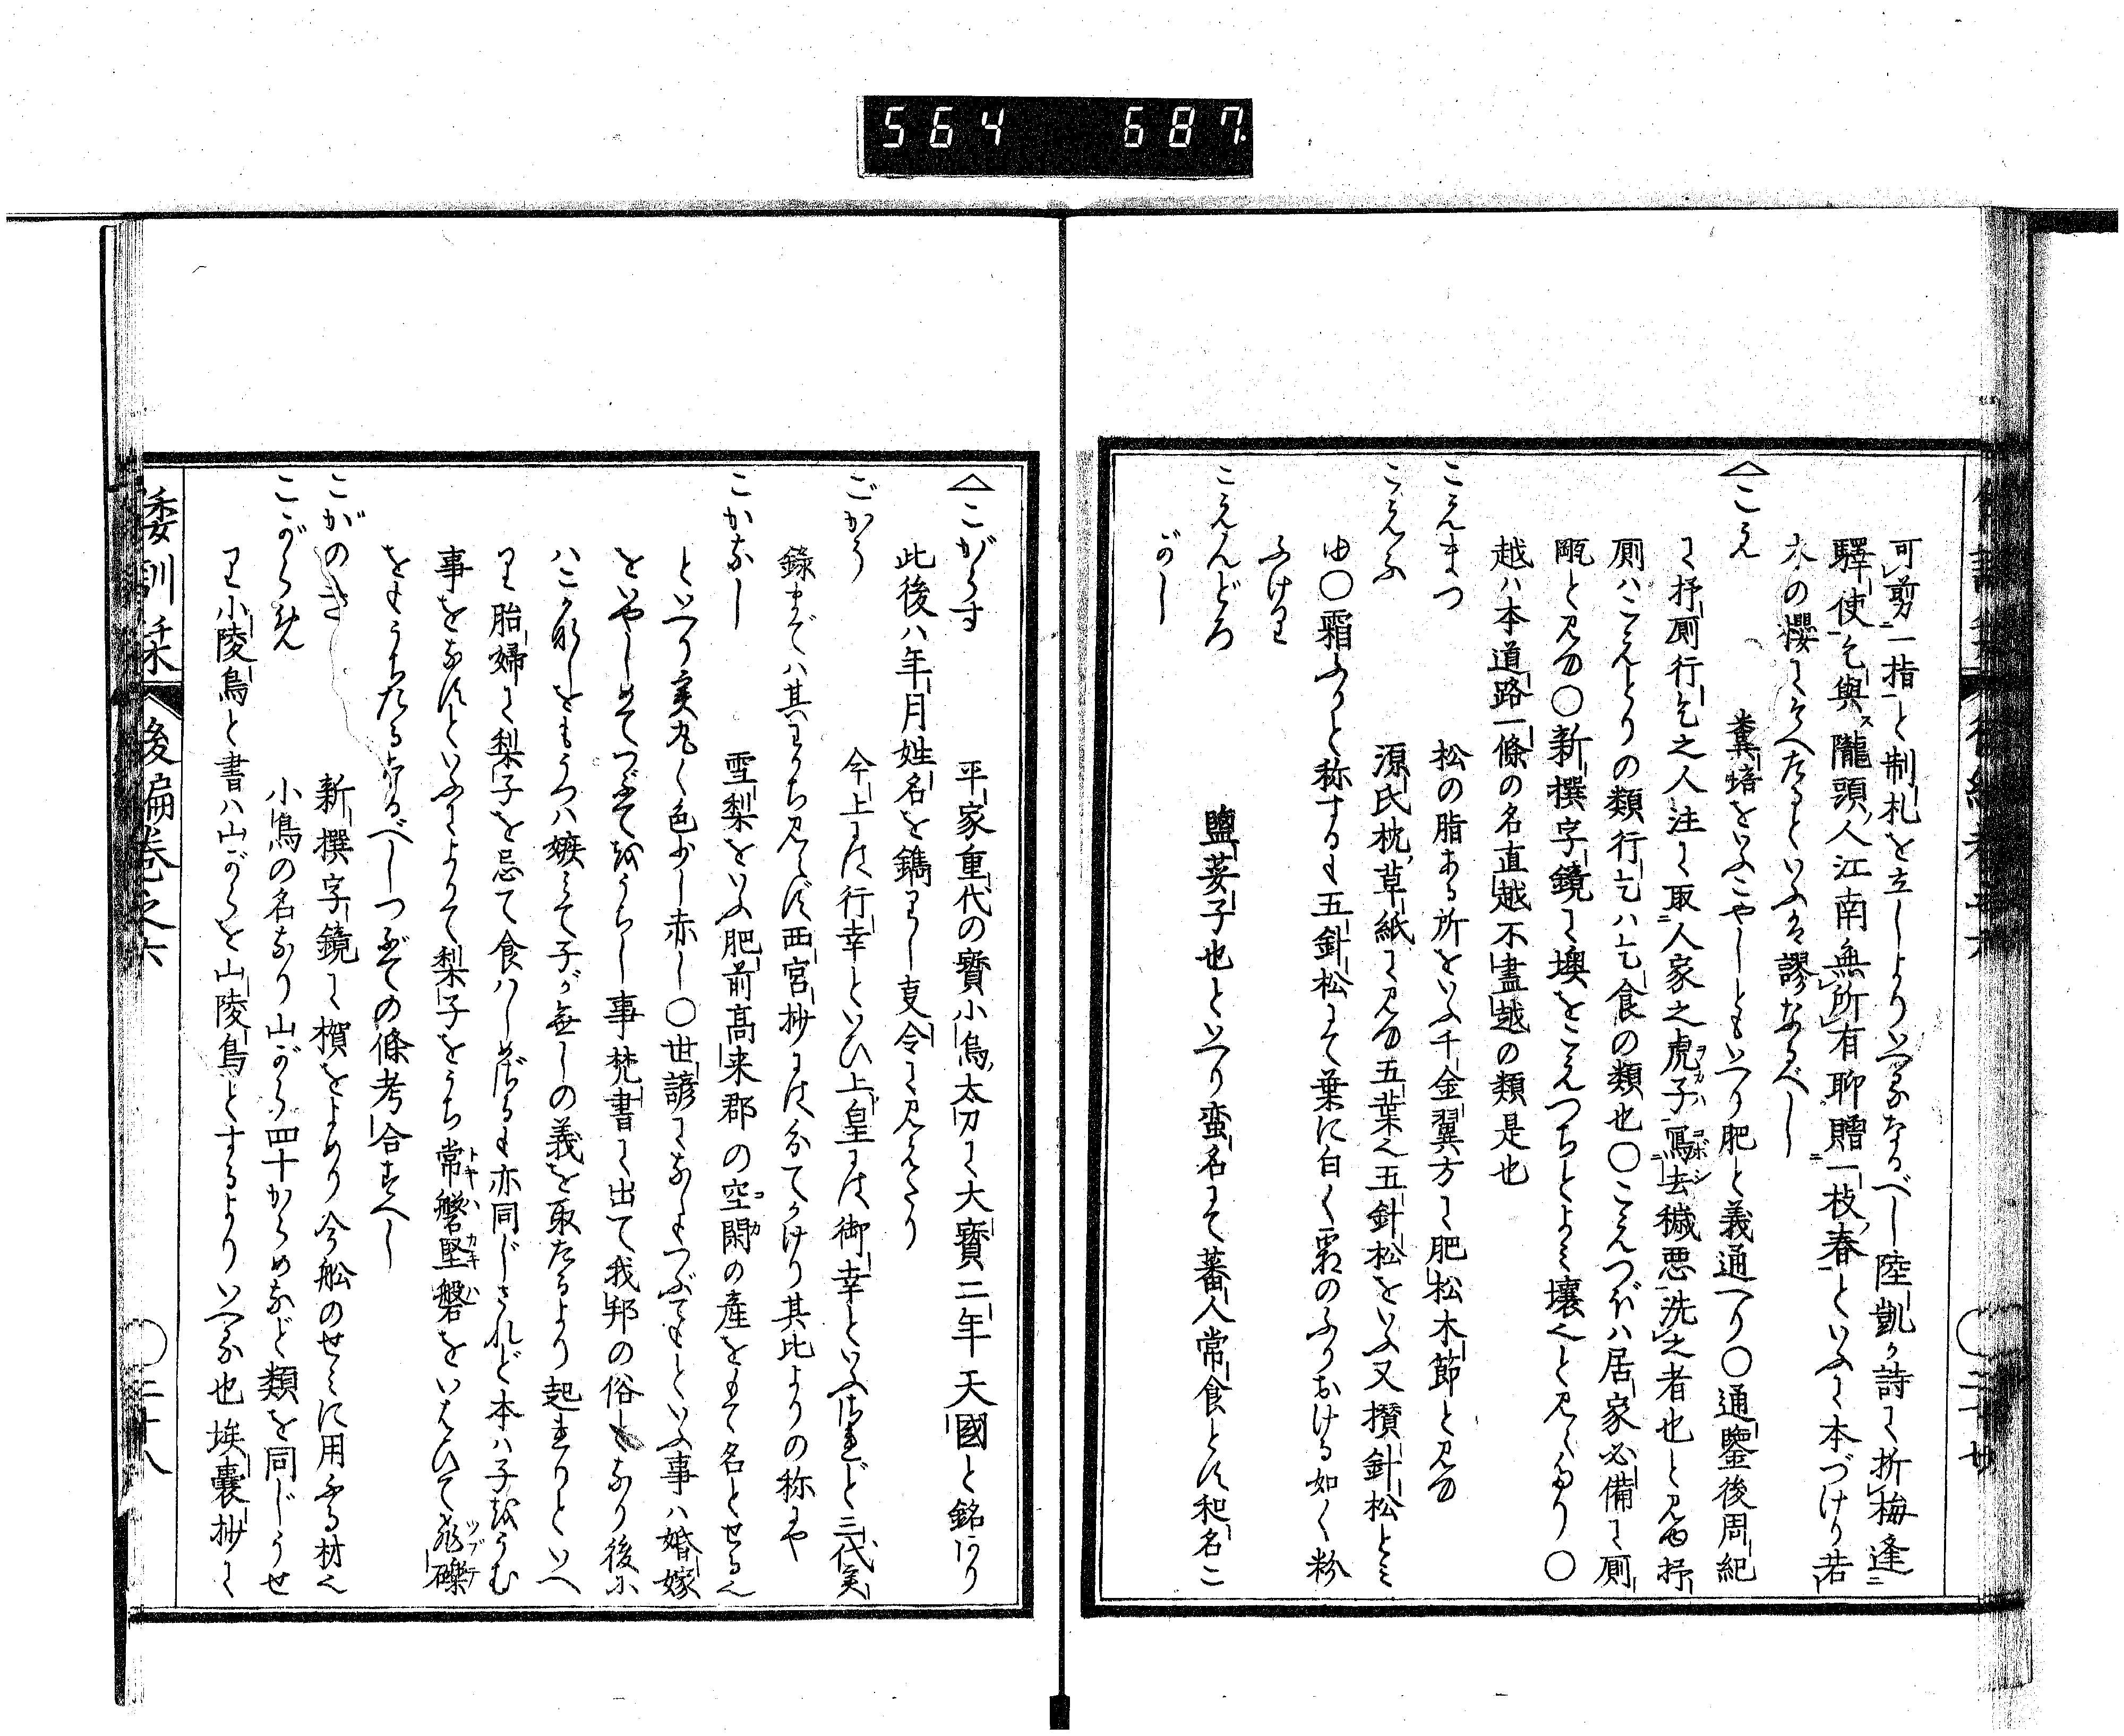 564 687
可剪一指と制札を立しよりいへるなるべし陸凱が詩に折梅逢
驛使乞與隴頭人江南無所有聊贈一枝春といふに本づけり若
木の櫻にそへたるといふは謬なるべし
こえ 糞培をいふこやしともいへり肥と義通へり〇通鑒後周紀
に抒厠行乞之人注に取人家之虎子瀉去穢悪洗之者也と見ゆ抒
厠ハこえとりの類行乞ハ乞食の類也〇こえつぼハ居家必備に厠
甌と見ゆ〇新撰字鏡に墺をこえつちとよみ壤也と見えたり〇
越ハ本道路一條の名直越不盡越の類是也
こえまつ 松の脂ある所をいふ千金翼方に肥松木節と見ゆ
こえふ 源氏枕草紙に見ゆ五葉也五針松をいふ又攅針松とも
ゆ〇霜ふりと称するも五針松にて葉に白く霜のふりおける如く粉
ふけり
こえんどろ 鹽荽子也といへり蛮名にて蕃人常食とす和名こ
がし
こがらす 平家重代の寳小烏太刀に大寳二年天國と銘あり
此後ハ年月姓名を鐫りし事令に見えたり
ごかう 今上には行幸といひ上皇には御幸といふけれど三代実
錄までハ其わかち見えず西宮抄には分てかけり其比よりの称にや
こかなし 雪梨をいふ肥前高来郡の空閑の産をもて名とせる也
といへり実丸く色少し赤し〇世諺になしもつぶてもといふ事ハ婚嫁
をいやしめてつぶてなうちし事梵書に出て我邦の俗となり後に
ハこなしをもうつハ嫉みて子が無しの義を取たるより起れりといへ
り胎婦に梨子を忌て食ハしめざるも亦同じされど本ハ子なうむ
事をなすといふによりて梨子をうち常磐堅磐をいはひて飛礫
をもうちたるなるべしつぶての條考合すべし
こがのき 新撰字鏡に樌をよめり今舩のせみに用ゐる材也
こがらめ 小鳥の名なり山がら四十からめなど類を同じうせ
り小陵鳥と書ハ山がらを山陵鳥とするよりいへる也埃囊抄に
倭訓栞 後編卷之六 〇二十八